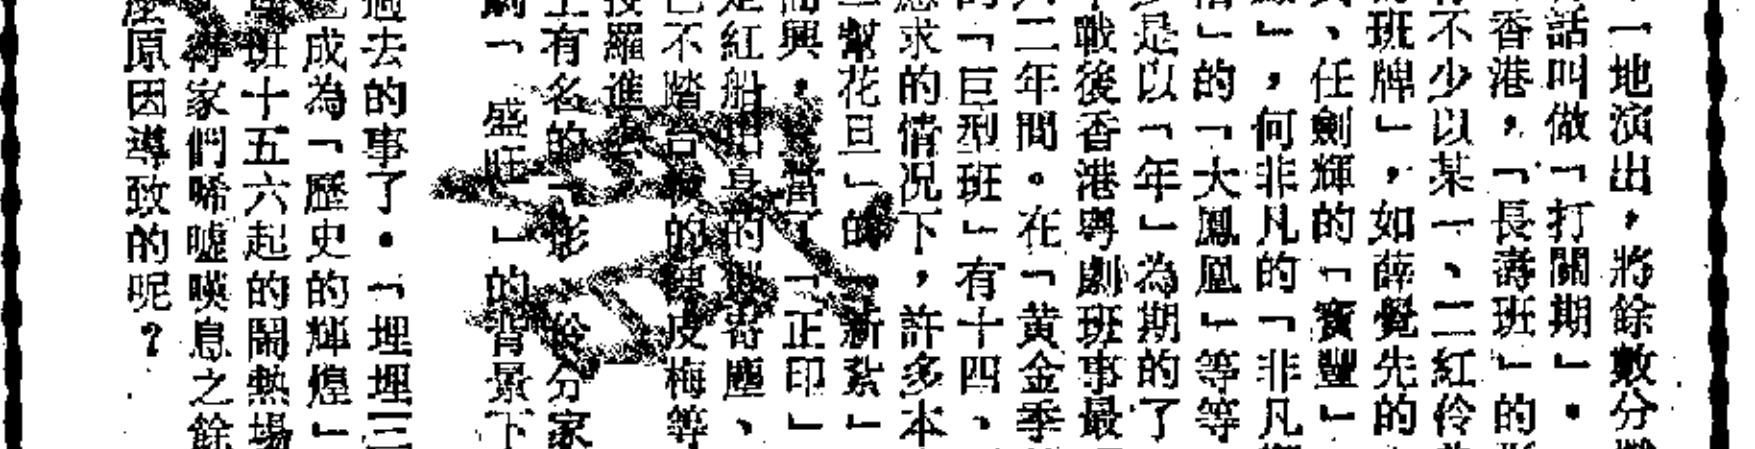 一地演出，將餘數分
話叫做「打關期」。
香港，「長壽班」的
不少以某一、二紅伶
班牌」，如薛覺先的
、任劍輝的「寶豐」
」，何非凡的「非凡
」的「大鳳凰」等等
是以「年」為期的了
戰後香港粵劇班事最
二年間。在「黄金季
「巨型班」有十四、
求的情況下，許多本
幫花旦」的「新紮」
興，當了「正印」
紅船 身的 塵、
不踏台 的 皮梅等
羅進
有名的 影 伶分家
「盛旺」的背景下
過去的事了。「埋埋三
成為「歷史的輝煌」
班十五六起的鬧熱場
家們唏噓嘆息之餘
原因導致的呢？